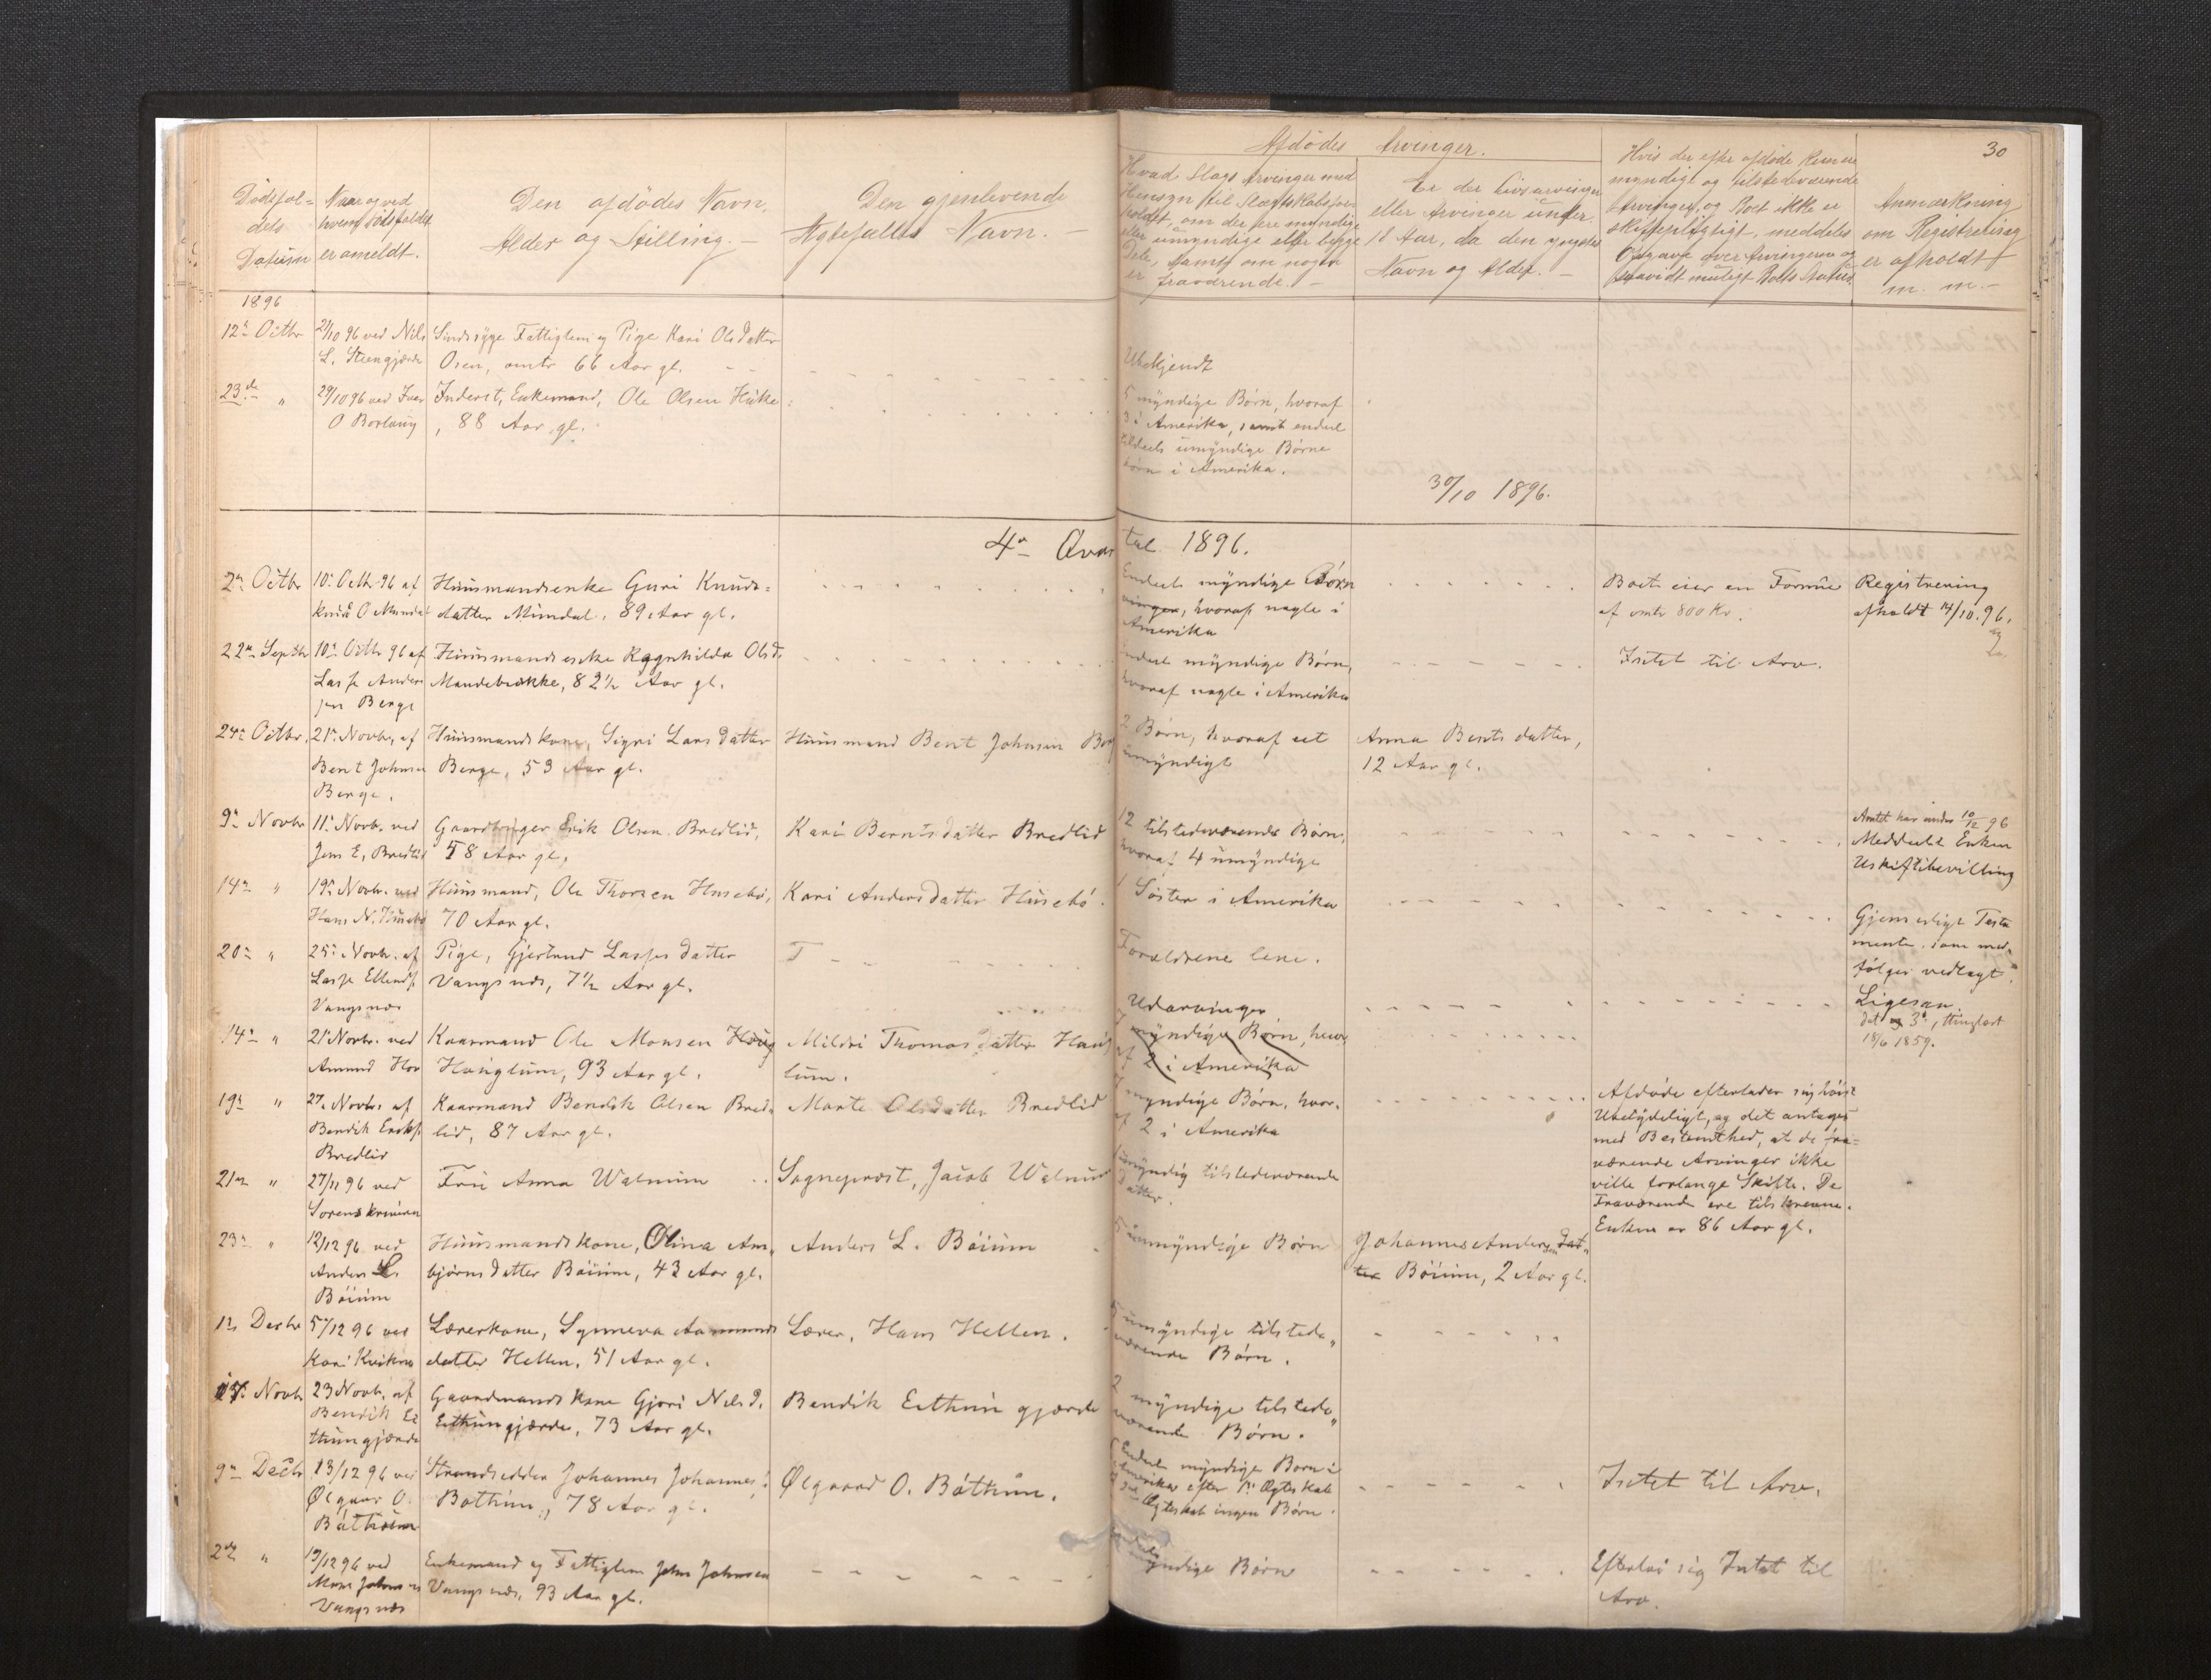 30
Afdødes Arvinger.
Dødsfal-
dets
Datum
Naar og ved
hvem Dødsfaldet
er anmeldt.
Den afdødes Navn,
Alder og Stilling. —
Den gjenlevende
Ægtefælles Navn. —
Hvad Slags Arvinger med
Hensyn til Slægtskabsfor-
holdet, om der ere myndige
eller umyndige eller begge
Dele, samt om nogen
er fraværende. —
Er der Livsarvinger
eller Arvinger under
18 Aar, da den yngstes
Navn og Alder. —
Hvis der efter afdøde kun ere
myndige og tilstedeværende
Arvinger, og Boet ikke er
skiftepligtigt, meddeles
Opgave over Arvingerne og
saavidt muligt Boets Status.
Anmærkning
om Registrering
er afholdt
m. m. —
1896
12te Octbr
21/10 96 ved Nils
L. Steengjærde
Sindssyge Fattiglem og Pige Kari Olsdatter
Osen, omtr 66 Aar gl.
Ubekjendt
23de "
29/10 96 ved Iver
O Borlaug
Inderst, Enkemand, Ole Olsen Hükke
, 88 Aar gl.
5 myndige Børn, hvoraf
3 i Amerika, samt endeel
tildeels umyndige Børne
børn i Amerika.
30/10 1896.
4de Qvartal 1896.
2den Octbr
10de Octb 96 af
Knud O Mundal
Huusmandsenke Guri Knuds=
datter Mundal, 89 Aar gl.
Endeel myndige Børn
hvoraf nogle i
Amerika
Boet eier en Formue
af omtr 800 Kr.
Registrering
afholdt 14/10. 96.
22de Septbr
10de Octbr 96 af
Lasse Ander
sen Berge
Huusmandsenke Ragnhilda Olsd.
Mundebrække, 82½ Aar gl.
Endeel myndige Børn,
hvoraf nogle i Amerika
Intet til Arv.
24de Octbr.
21de Novbr. af
Bent Johnsen
Berge.
Huusmandskone, Signi Larsdatter
Berge, 53 Aar gl.
Huusmand Bent Johnsen Berge
2 Børn, hvoraf eet
umyndigt
Anna Bentsdatter,
12 Aar gl.
9de Novbr
11te Novb. ved
Jens E. Bredlid
Gaardbruger Erik Olsen Bredlid,
58 Aar gl,
Kari Berntsdatter Bredlid
12 tilstedeværende Børn,
hvoraf 4 umyndige
Amtet har under 10/12 96
Meddeelt Enken
Uskiftebevilling
14de "
19de Novbr. ved
Hans N. Husebø
Huusmand, Ole Thorsen Husebø,
70 Aar gl.
Kari Andersdatter Husebø.
1 Søster i Amerika
Gjensidigt Testa
mente som med=
følger vedlagt.
20de "
25de Novbr. af
Lasse Ellends.
Vangsnæs
Pige, Gjertrud Lassesdatter
Vangsnæs, 7½ Aar gl.
Forældrene lene.
14de "
21de Novbr. ved
Amund Hov
Kaarmand Ole Monsen Haug
Hauglum, 93 Aar gl.
Mildri Thomasdatter Haug
lum.
Udarvinger
7 myndige Børn, hvor
af 2 i Amerika
Ligesaa,
dat 3de, thinglæst
18/6 1859.
19de "
27. Novbr af
Bendik Eriks.
Bredlid
Kaarmand Bendik Olsen Bred=
lid, 87 Aar gl.
Marte Olsdatter Bredlid
7 myndige Børn, hvor=
af 2 i Amerika
Afdøde efterlader sig høist
Ubetydeligt, og det antages
med Bestemthed, at de fra=
værende Arvinger ikke
ville forlange Skifte. De
Fraværende ere tilskrevne.
Enken er 86 Aar gl.
21de "
27/11 96 ved
Sorenskriveren
Frü Anna Walnum
Sogneprest, Jacob Walnum
1 myndig tilstedeværende
Datter.
23de "
12/12 96 ved
Anders L.
Bøium
Huusmandskone, Olina Am=
bjørnsdatter Bøium, 43 Aar gl.
Anders L. Bøium
5 umyndige Børn
Johannes Andersen Dat=
ter Bøium, 2 Aar gl.
1ste Decbr
5/12 96 ved
Kari Kvikne
Lærerkone, Synneva Aamunds
datter Hellen, 51 Aar gl.
Lærer, Hans Hellen.
5 umyndige tilstede=
værende Børn.
17de Novb
23 Novb. af
Bendik Ei
thungjærde
Gaardmandskone Gjøri Nilsd.
Eithungjærde, 73 Aar gl.
Bendik Eithungjærde
2 myndige tilstede=
værende Børn.
9de Decbr
13/12 96 ved
Ølgaar O.
Båthum
Strandsidder Johannes Johannes.
Båthum, 78 Aar gl.
Ølgaard O. Båthum.
Endeel myndige Børn i
Amerika efter 1ste Ægteskab
af 2det Ægteskab ingen Børn.
Intet til Arv.
2den "
19/12 96 ved
Mons Johnsen
Vangsnæs
Enkemand og Fattiglem John Johnsen
Vangsnæs, 93 Aar gl.
myndige Børn
Efterlod sig Intet til
Arv.